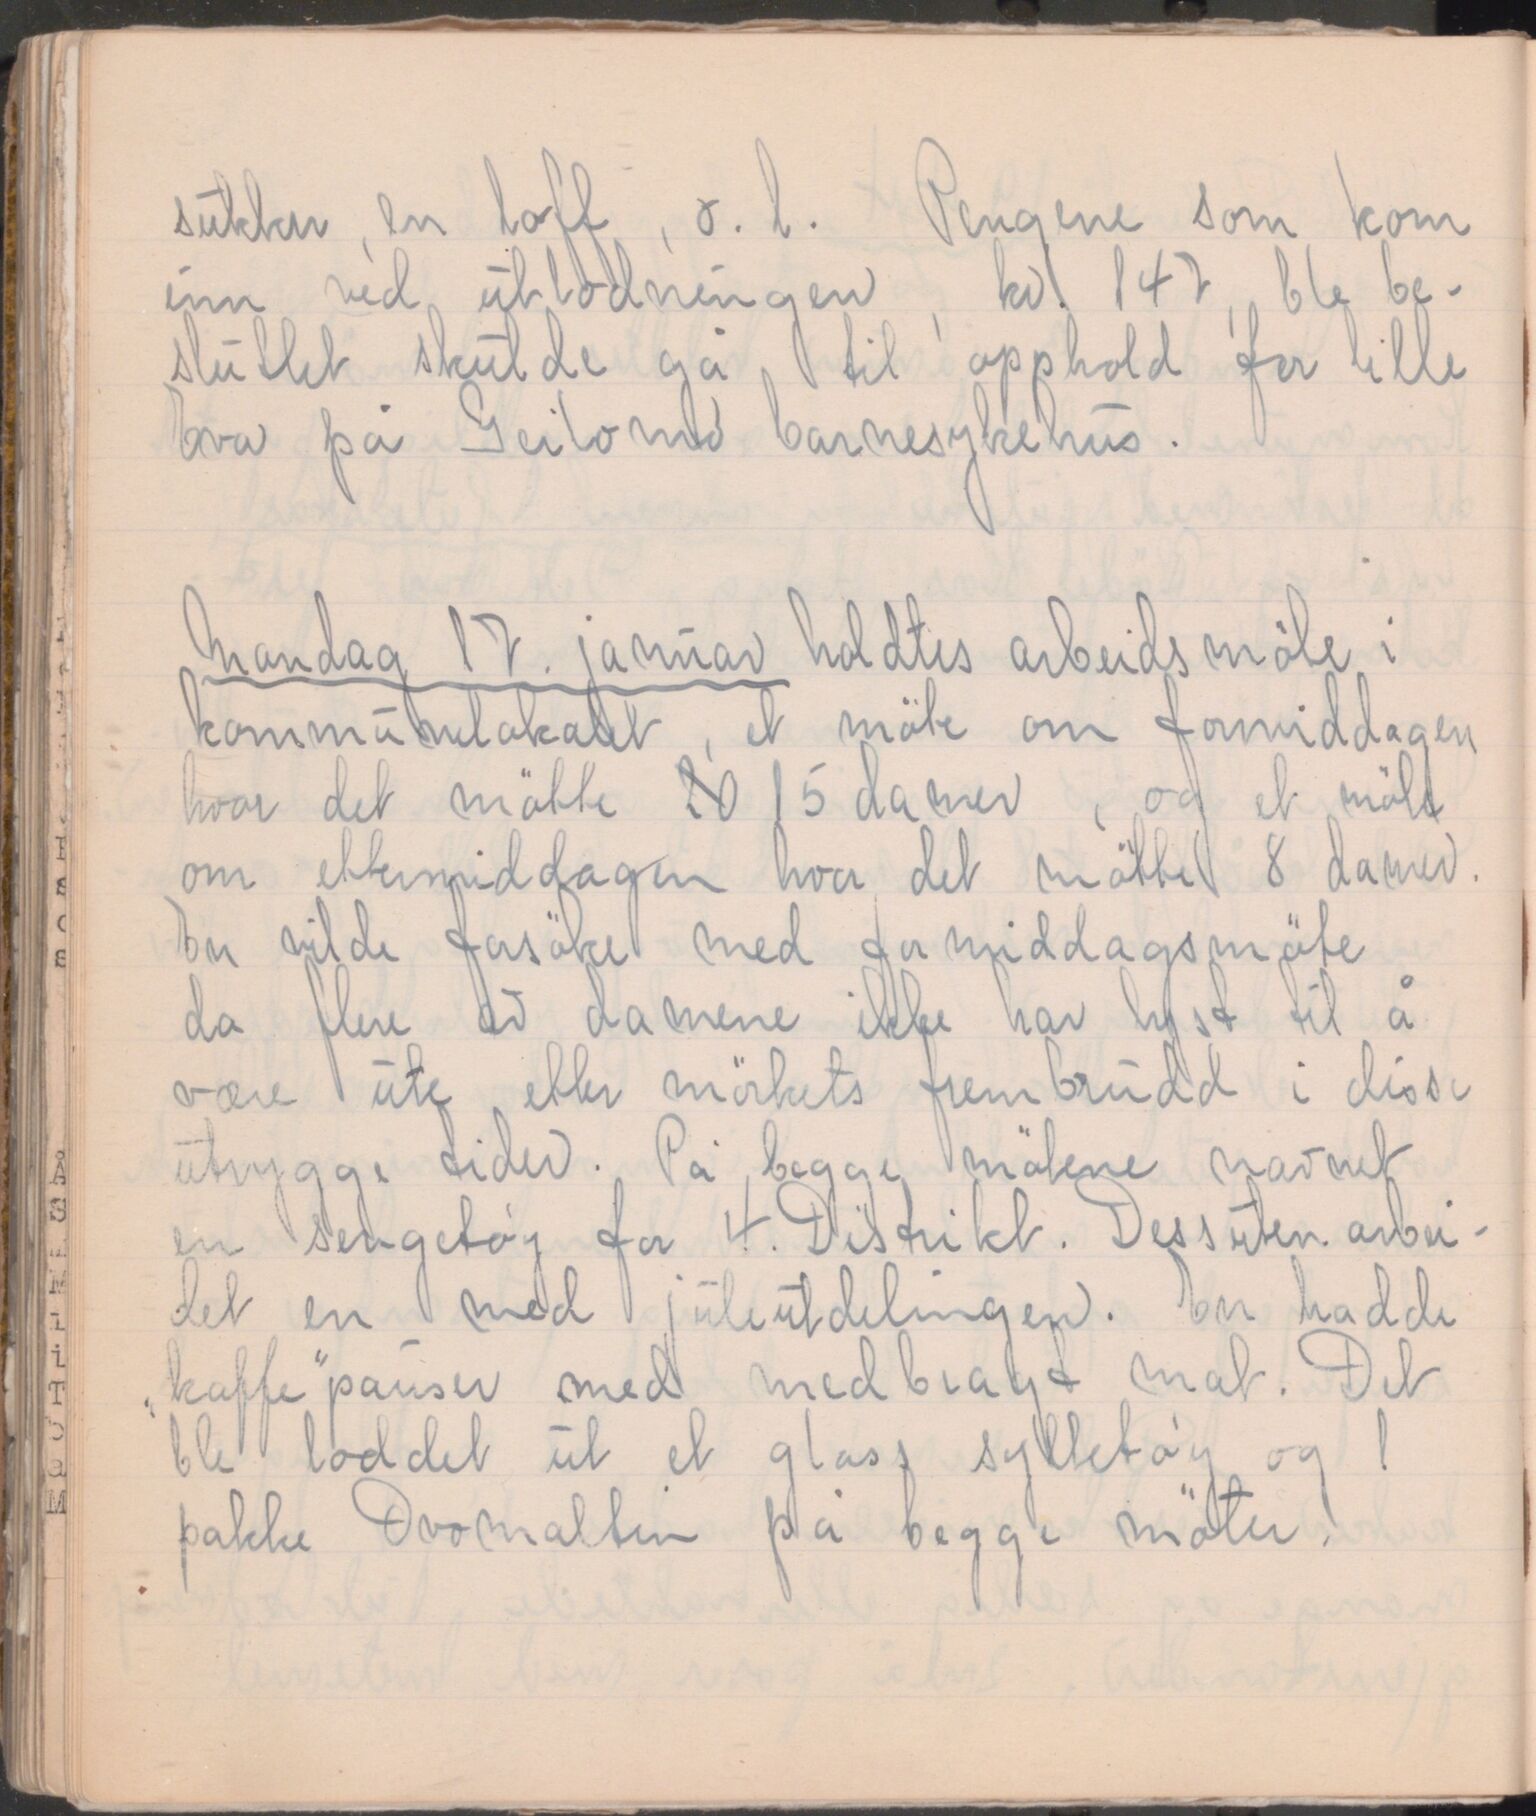 sukker, en loff, o. l. Pengene som kom
inn ved utlodningen, kr. 147, ble be-
sluttet skulde gå til opphold for lille
Eva på Geilomo barnesykehus.
Mandag 17. januar holdtes arbeidsmöte i
kommunelokalet, et möte om formiddagen
hvor det mötte 15 damer, og et möte
om ettermiddagen hvor det mötte 8 damer.
En vilde forsöke med formiddagsmöte
da flere av damene ikke har lyst til å
være ute etter mörkets frembrudd i disse
utrygge tider. På begge mötene navnet
en sengetöy for 4. Distrikt. Dessuten arbei-
det en med juleutdelingen. En hadde
"kaffe"pauser med medbragt mat. Det
ble loddet ut et glass syltetöy og 1
pakke Ovomaltin på begge möter.